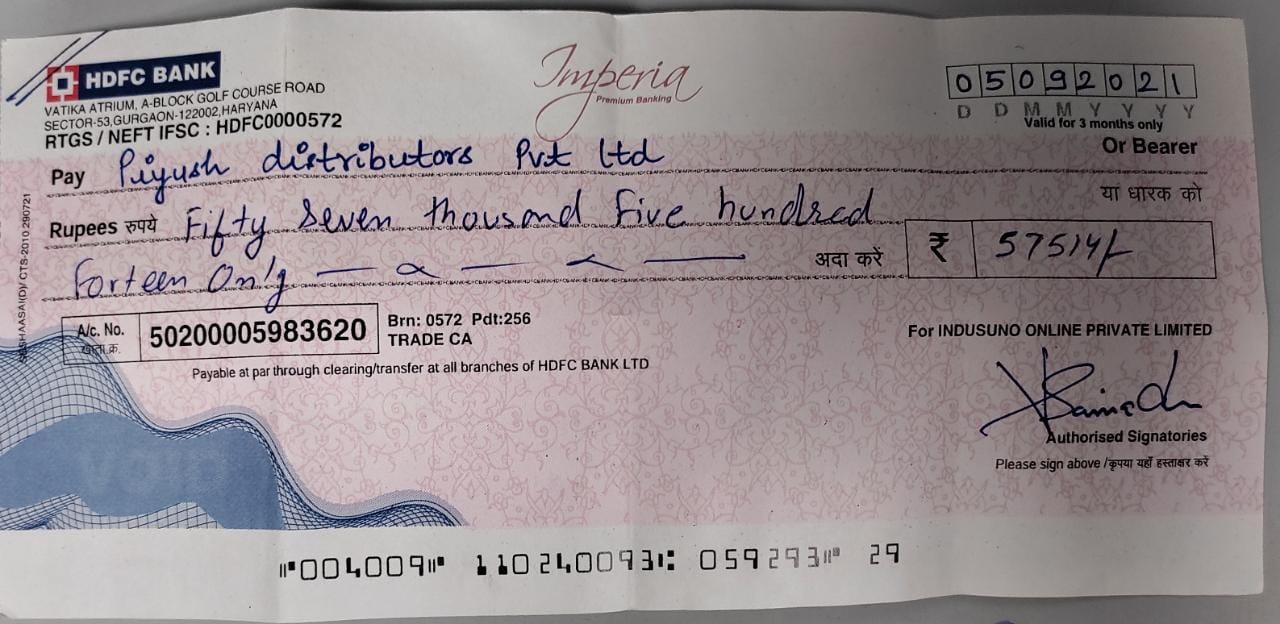 HDFC BANK
VATIKA ATRIUM, A-BLOCK GOLF COURSE ROAD
SECTOR-53,GURGAON-122002,HARYANA
RTGS / NEFT IFSC : HDFC0000572
Imperia
Premium Banking
05092021
D D M M Y Y Y Y
Valid for 3 months only
Pay Piyush distributors Pvt Ltd Or Bearer
या धारक को
Rupees रुपये Fifty Seven thousand Five hundred
Forteen Only अदा करें ₹ 57514/-
A/c. No. 50200005983620
Brn: 0572 Pdt:256
TRADE CA
Payable at par through clearing/transfer at all branches of HDFC BANK LTD
For INDUSUNO ONLINE PRIVATE LIMITED
Authorised Signatories
Please sign above /कृपया यहाँ हस्ताक्षर करें
CTS-2010 290721
VOID
⑈004009⑈ 110240093⑆ 059293⑈ 29